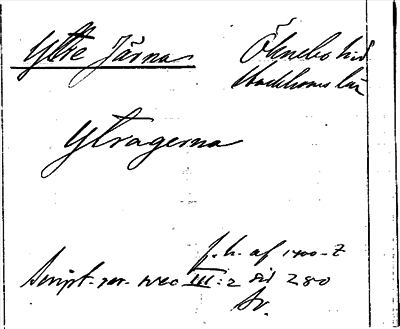 Ytre Järna Öknebo hd
Stockholms län
Ytragerna
f. h. af 1400-t
Script. rer. svec III:2 sid 280
Sv.